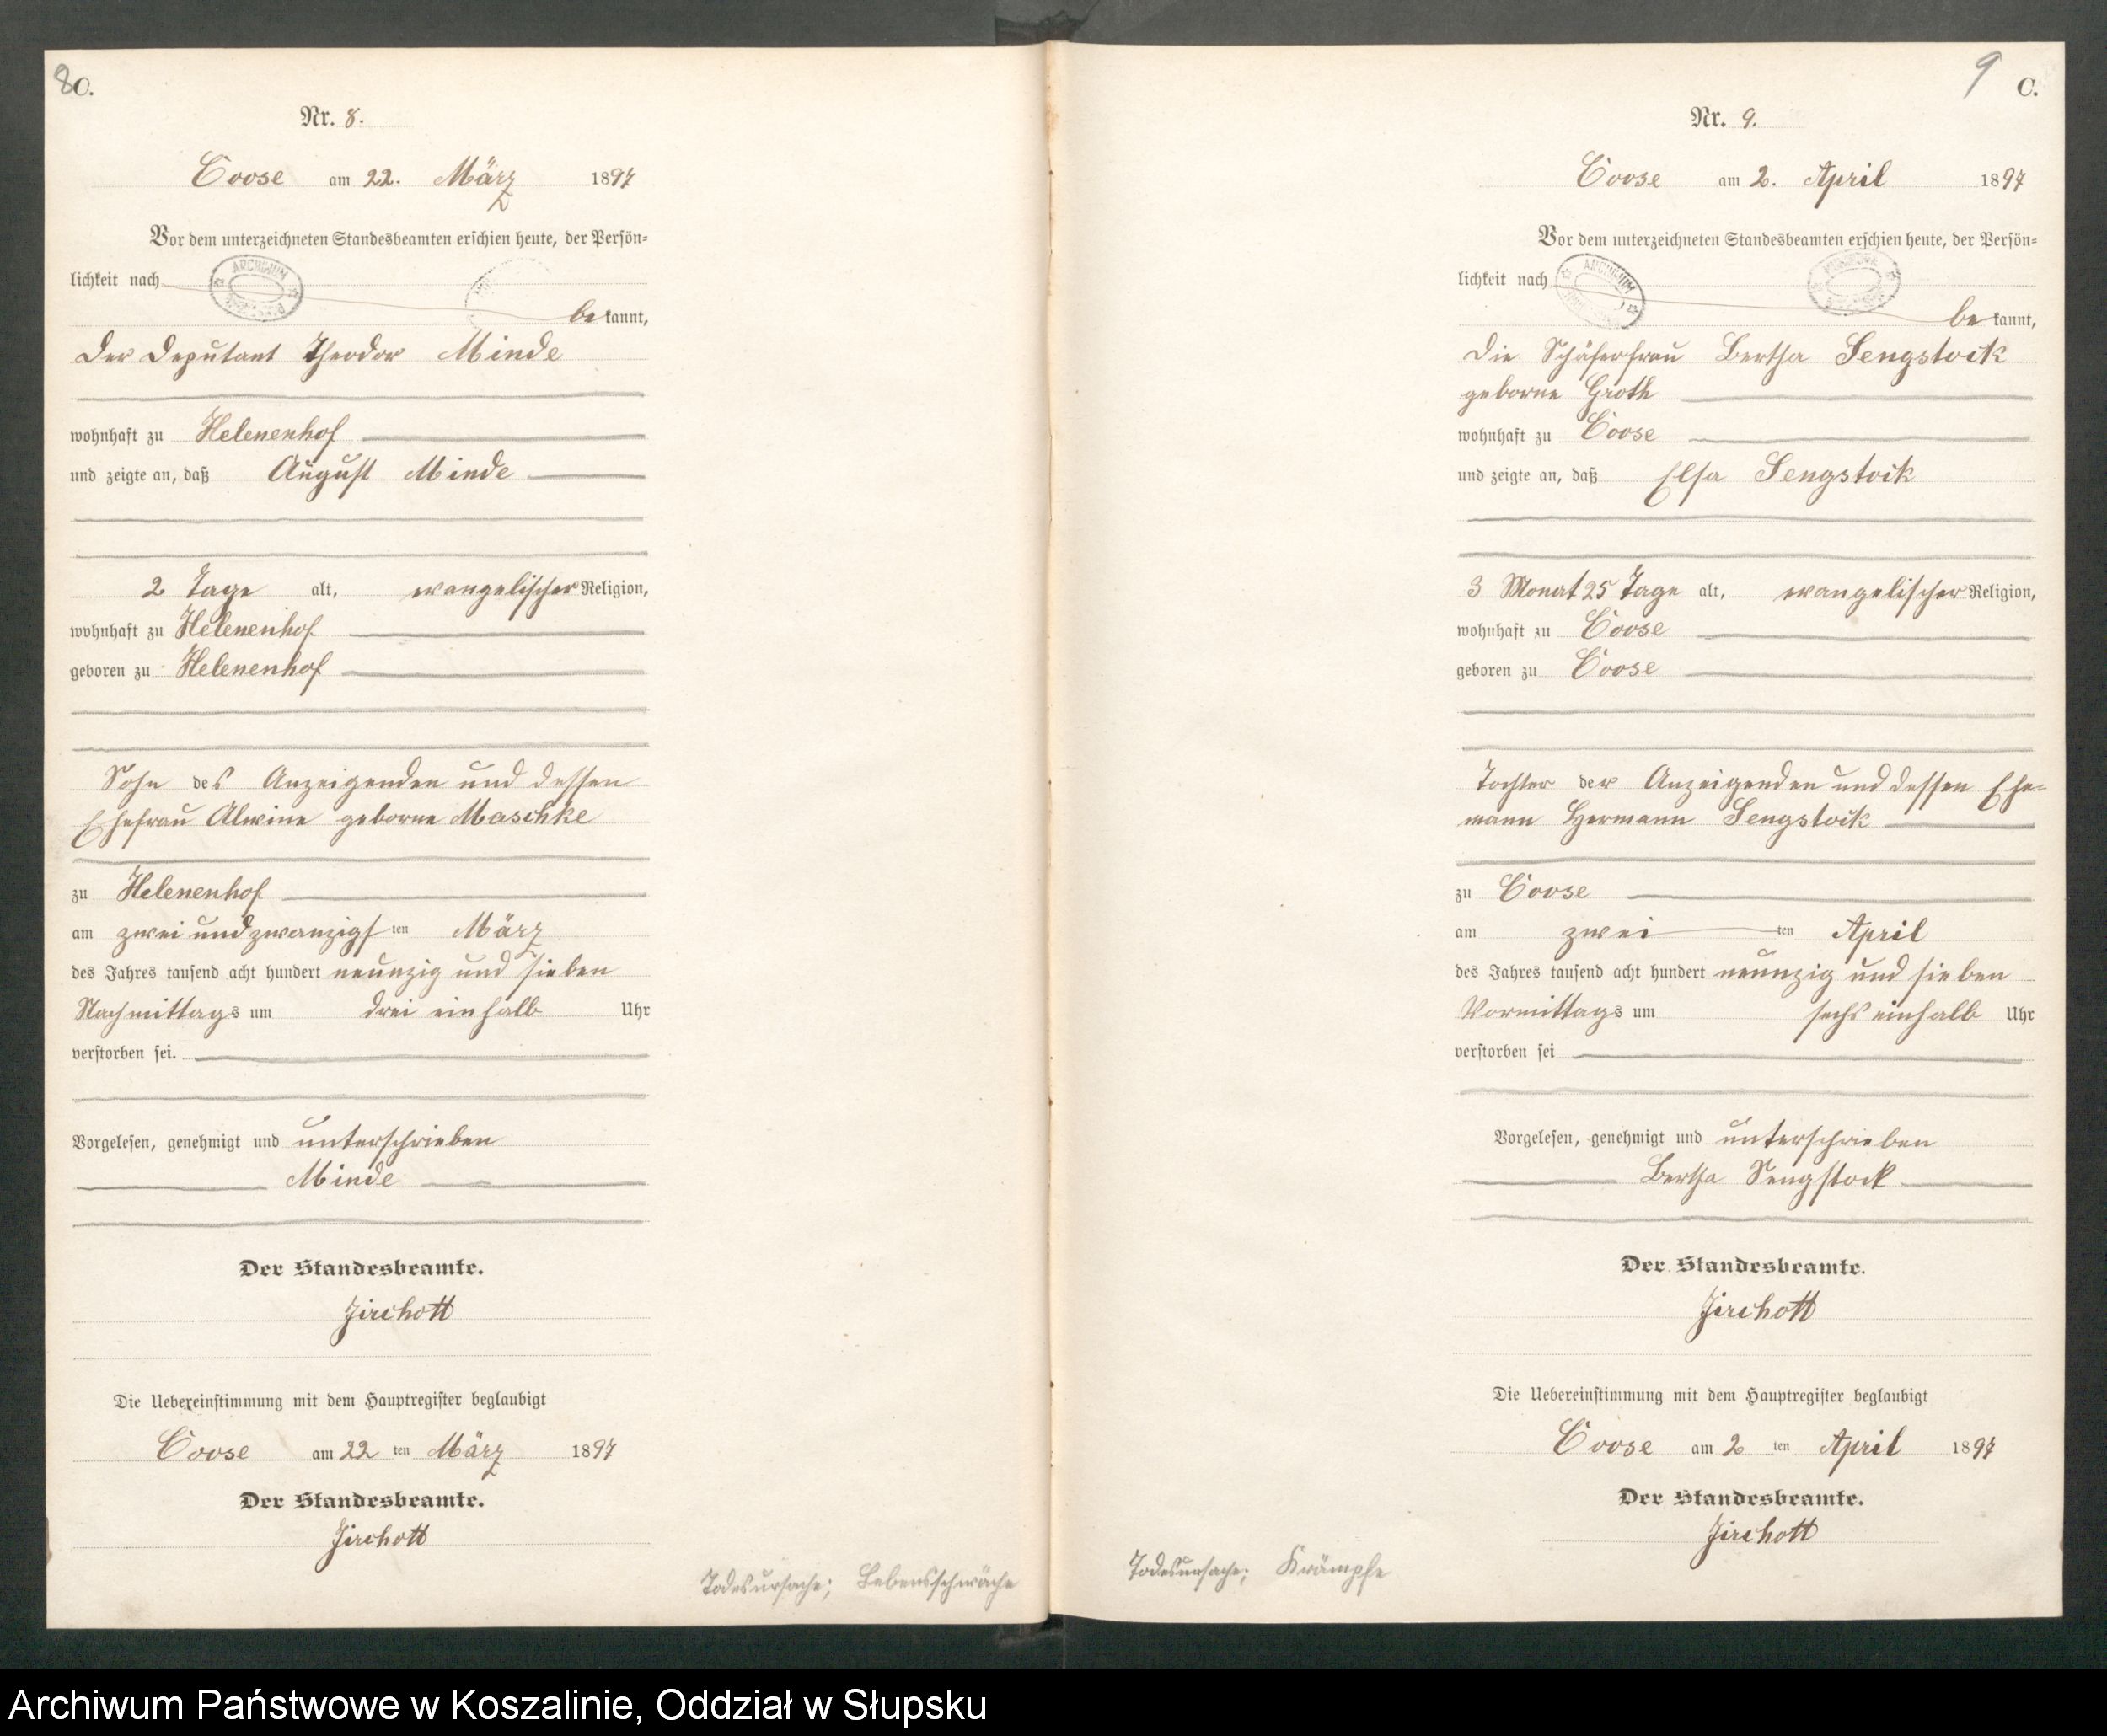 8 C.
Nr. 8.
Coose am 22. März 1897
Vor dem unterzeichneten Standesbeamten erschien heute, der Persön-
lichkeit nach
be kannt,
der Deputant Theodor Minde
wohnhaft zu Helenenhof
und zeigte an, daß August Minde
2 Tage alt, evangelischer Religion,
wohnhaft zu Helenenhof
geboren zu Helenenhof
Sohn des Anzeigenden und dessen
Ehefrau Alwine geborne Maschke
zu Helenenhof
am zwei und zwanzigsten März
des Jahres tausend acht hundert neunzig und sieben
Nachmittags um drei einhalb Uhr
verstorben sei.
Vorgelesen, genehmigt und unterschrieben
Minde
Der Standesbeamte.
Zirchott
Die Uebereinstimmung mit dem Hauptregister beglaubigt
Coose am 22 ten März 1897
Der Standesbeamte.
Zirchott
Todesursache; Lebensschwäche
9 C.
Nr. 9.
Coose am 2. April 1897
Vor dem unterzeichneten Standesbeamten erschien heute, der Persön-
lichkeit nach
ARCHIWUM
be kannt,
die Schäferfrau Bertha Sengstock
geborne Groth
wohnhaft zu Coose
und zeigte an, daß Elsa Sengstock
3 Monat 25 Tage alt, evangelischer Religion,
wohnhaft zu Coose
geboren zu Coose
Tochter der Anzeigenden und dessen Ehe-
mann Hermann Sengstock
zu Coose
am zwei ten April
des Jahres tausend acht hundert neunzig und sieben
Vormittags um sechs einhalb Uhr
verstorben sei
Vorgelesen, genehmigt und unterschrieben
Bertha Sengstock
Der Standesbeamte.
Zirchott
Die Uebereinstimmung mit dem Hauptregister beglaubigt
Coose am 2 ten April 1897
Der Standesbeamte.
Zirchott
Todesursache; Krämpfe
Archiwum Państwowe w Koszalinie, Oddział w Słupsku